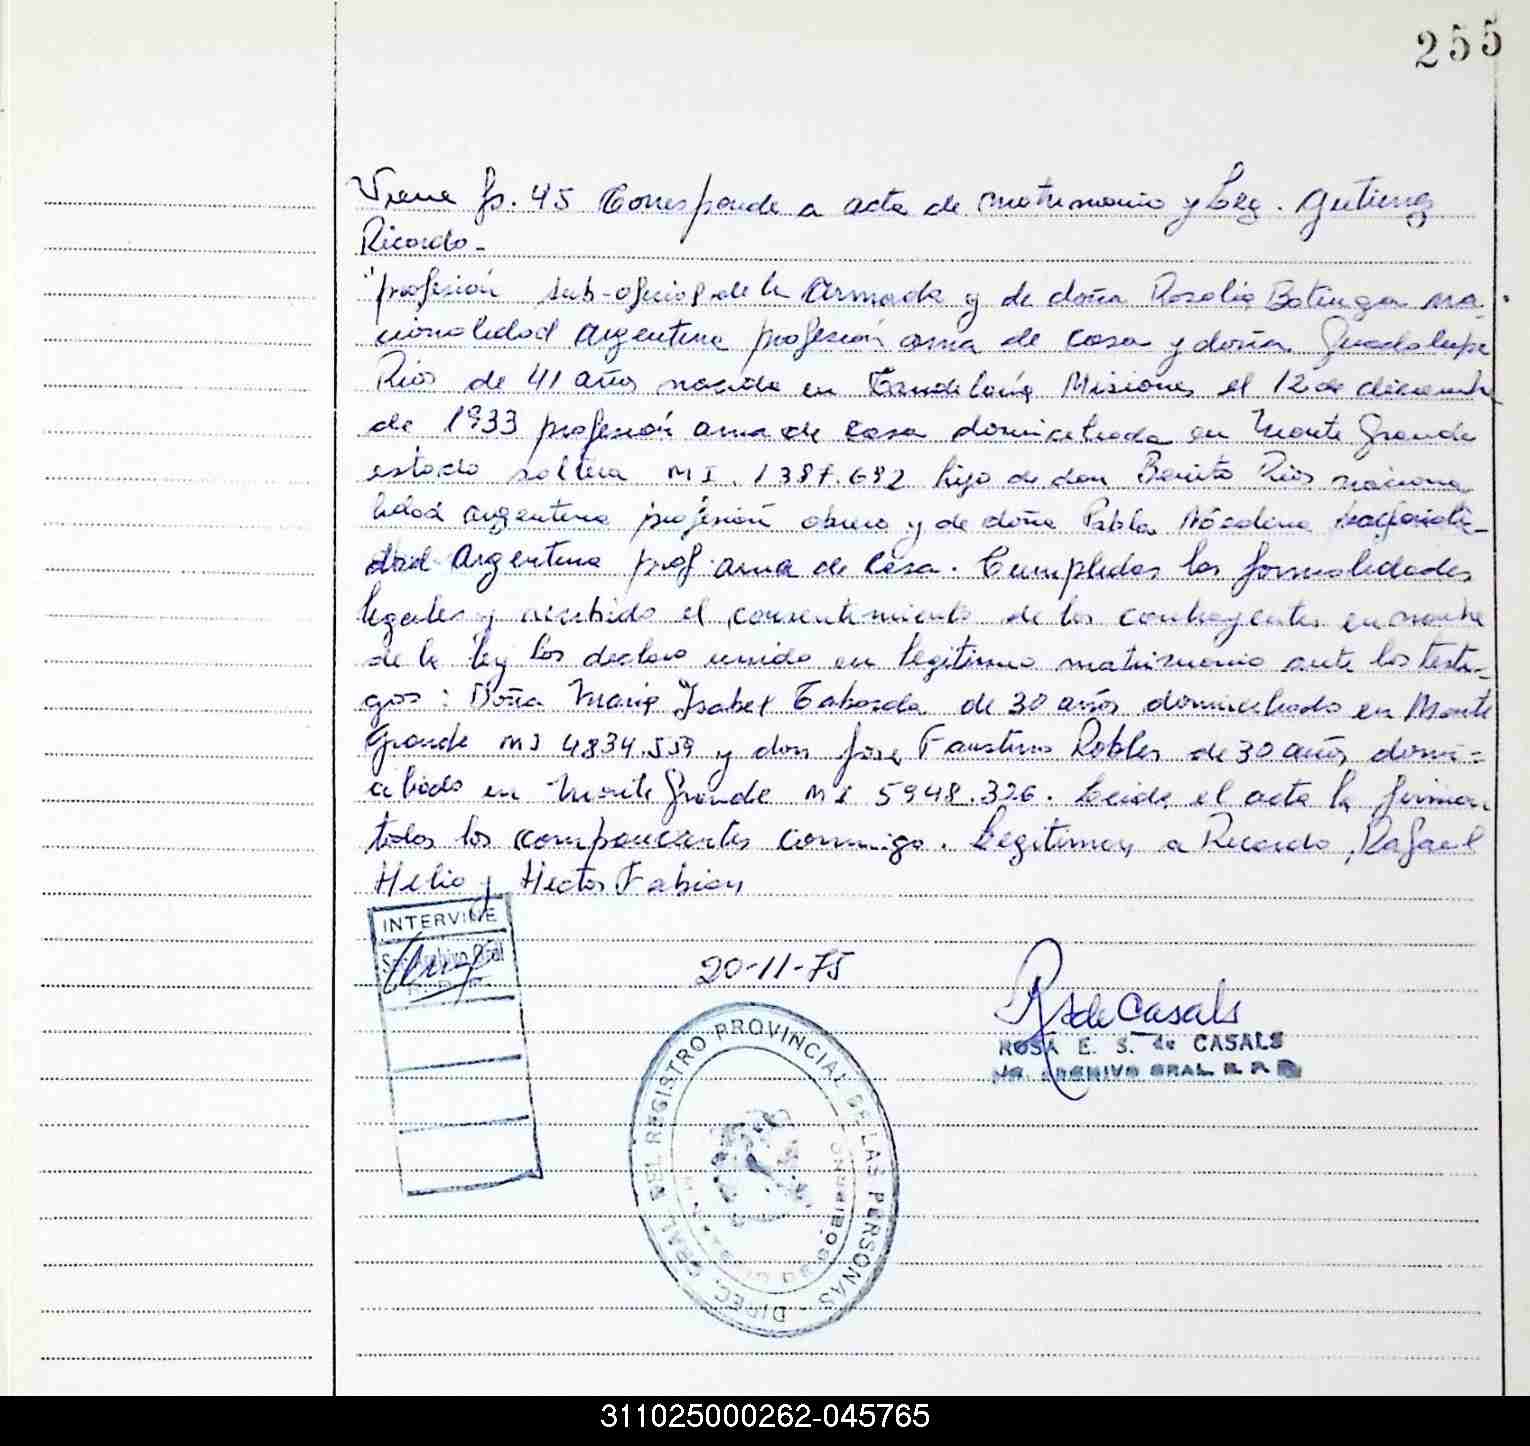 255
Viene fs. 45 Corresponde a acta de matrimonio y Leg. Gutierrez
Ricardo -
"profesión sub-oficial de la Armada y de doña Rosalia na-
cionalidad Argentina profesión ama de casa y doña Guadalupe
Rios de 41 años nacida en Candelaria Misiones el 12 de diciembre
de 1933 profesión ama de casa domiciliada en Monte Grande
estado soltera M I . 1387.692 hija de don Benito Rios naciona
lidad argentina profesión obrero y de doña Pabla nacionali-
dad Argentina prof ama de casa. Cumplidas las formalidades
legales y recibido el consentimiento de los contrayentes en nombre
de la ley los declaro unidos en legitimo matrimonio ante los testi-
gos: Doña Maria Ysabel Taborda de 30 años domiciliada en Monte
Grande MI 4834.559 y don Jose Faustino Robles de 30 años domi=
ciliado en Monte Grande MI 5948.326. Leida el acta la firman
todos los comparecientes conmigo. Legitiman a Ricardo, Rafael
Helio y Hector Fabian
INTERVINE
Archivo Gral
20-11-75
R S de Casals
ROSA E. S. de CASALS
ARCHIVO GRAL. R. P. P.
DIREC. GRAL. DEL REGISTRO PROVINCIAL DE LAS PERSONAS
311025000262-045765